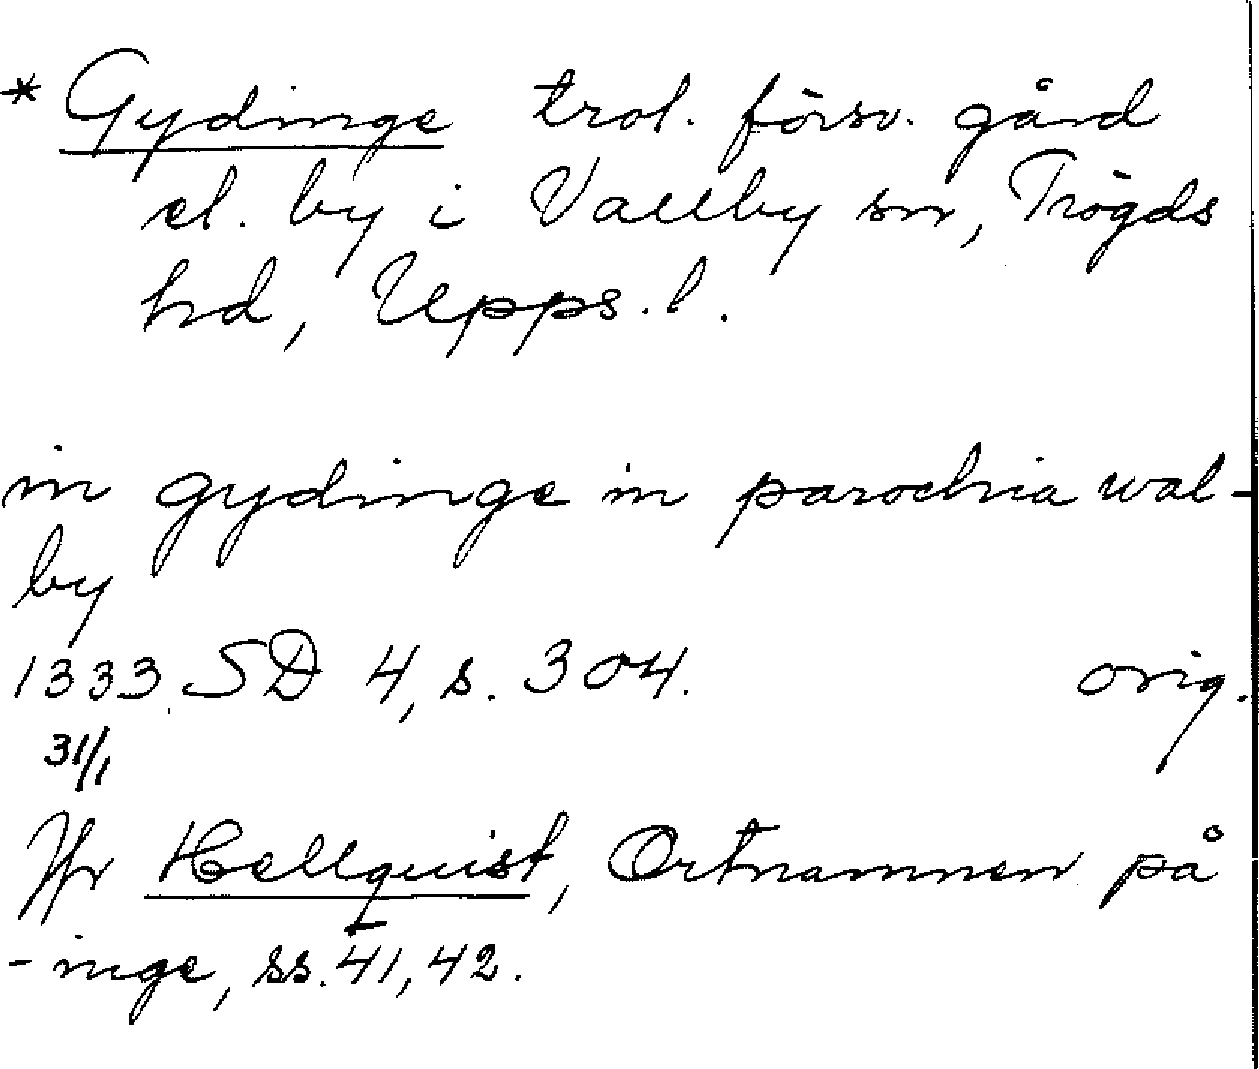 * Gydinge trol. försv. gård
el. by i Vallby sn, Trögds
hd, Upps. l.
in gydinge in parochia wal-
by
1333 SD 4, s. 304. orig.
31/1
Jfr Hellquist, Ortnamnen på
-inge, ss. 41, 42.